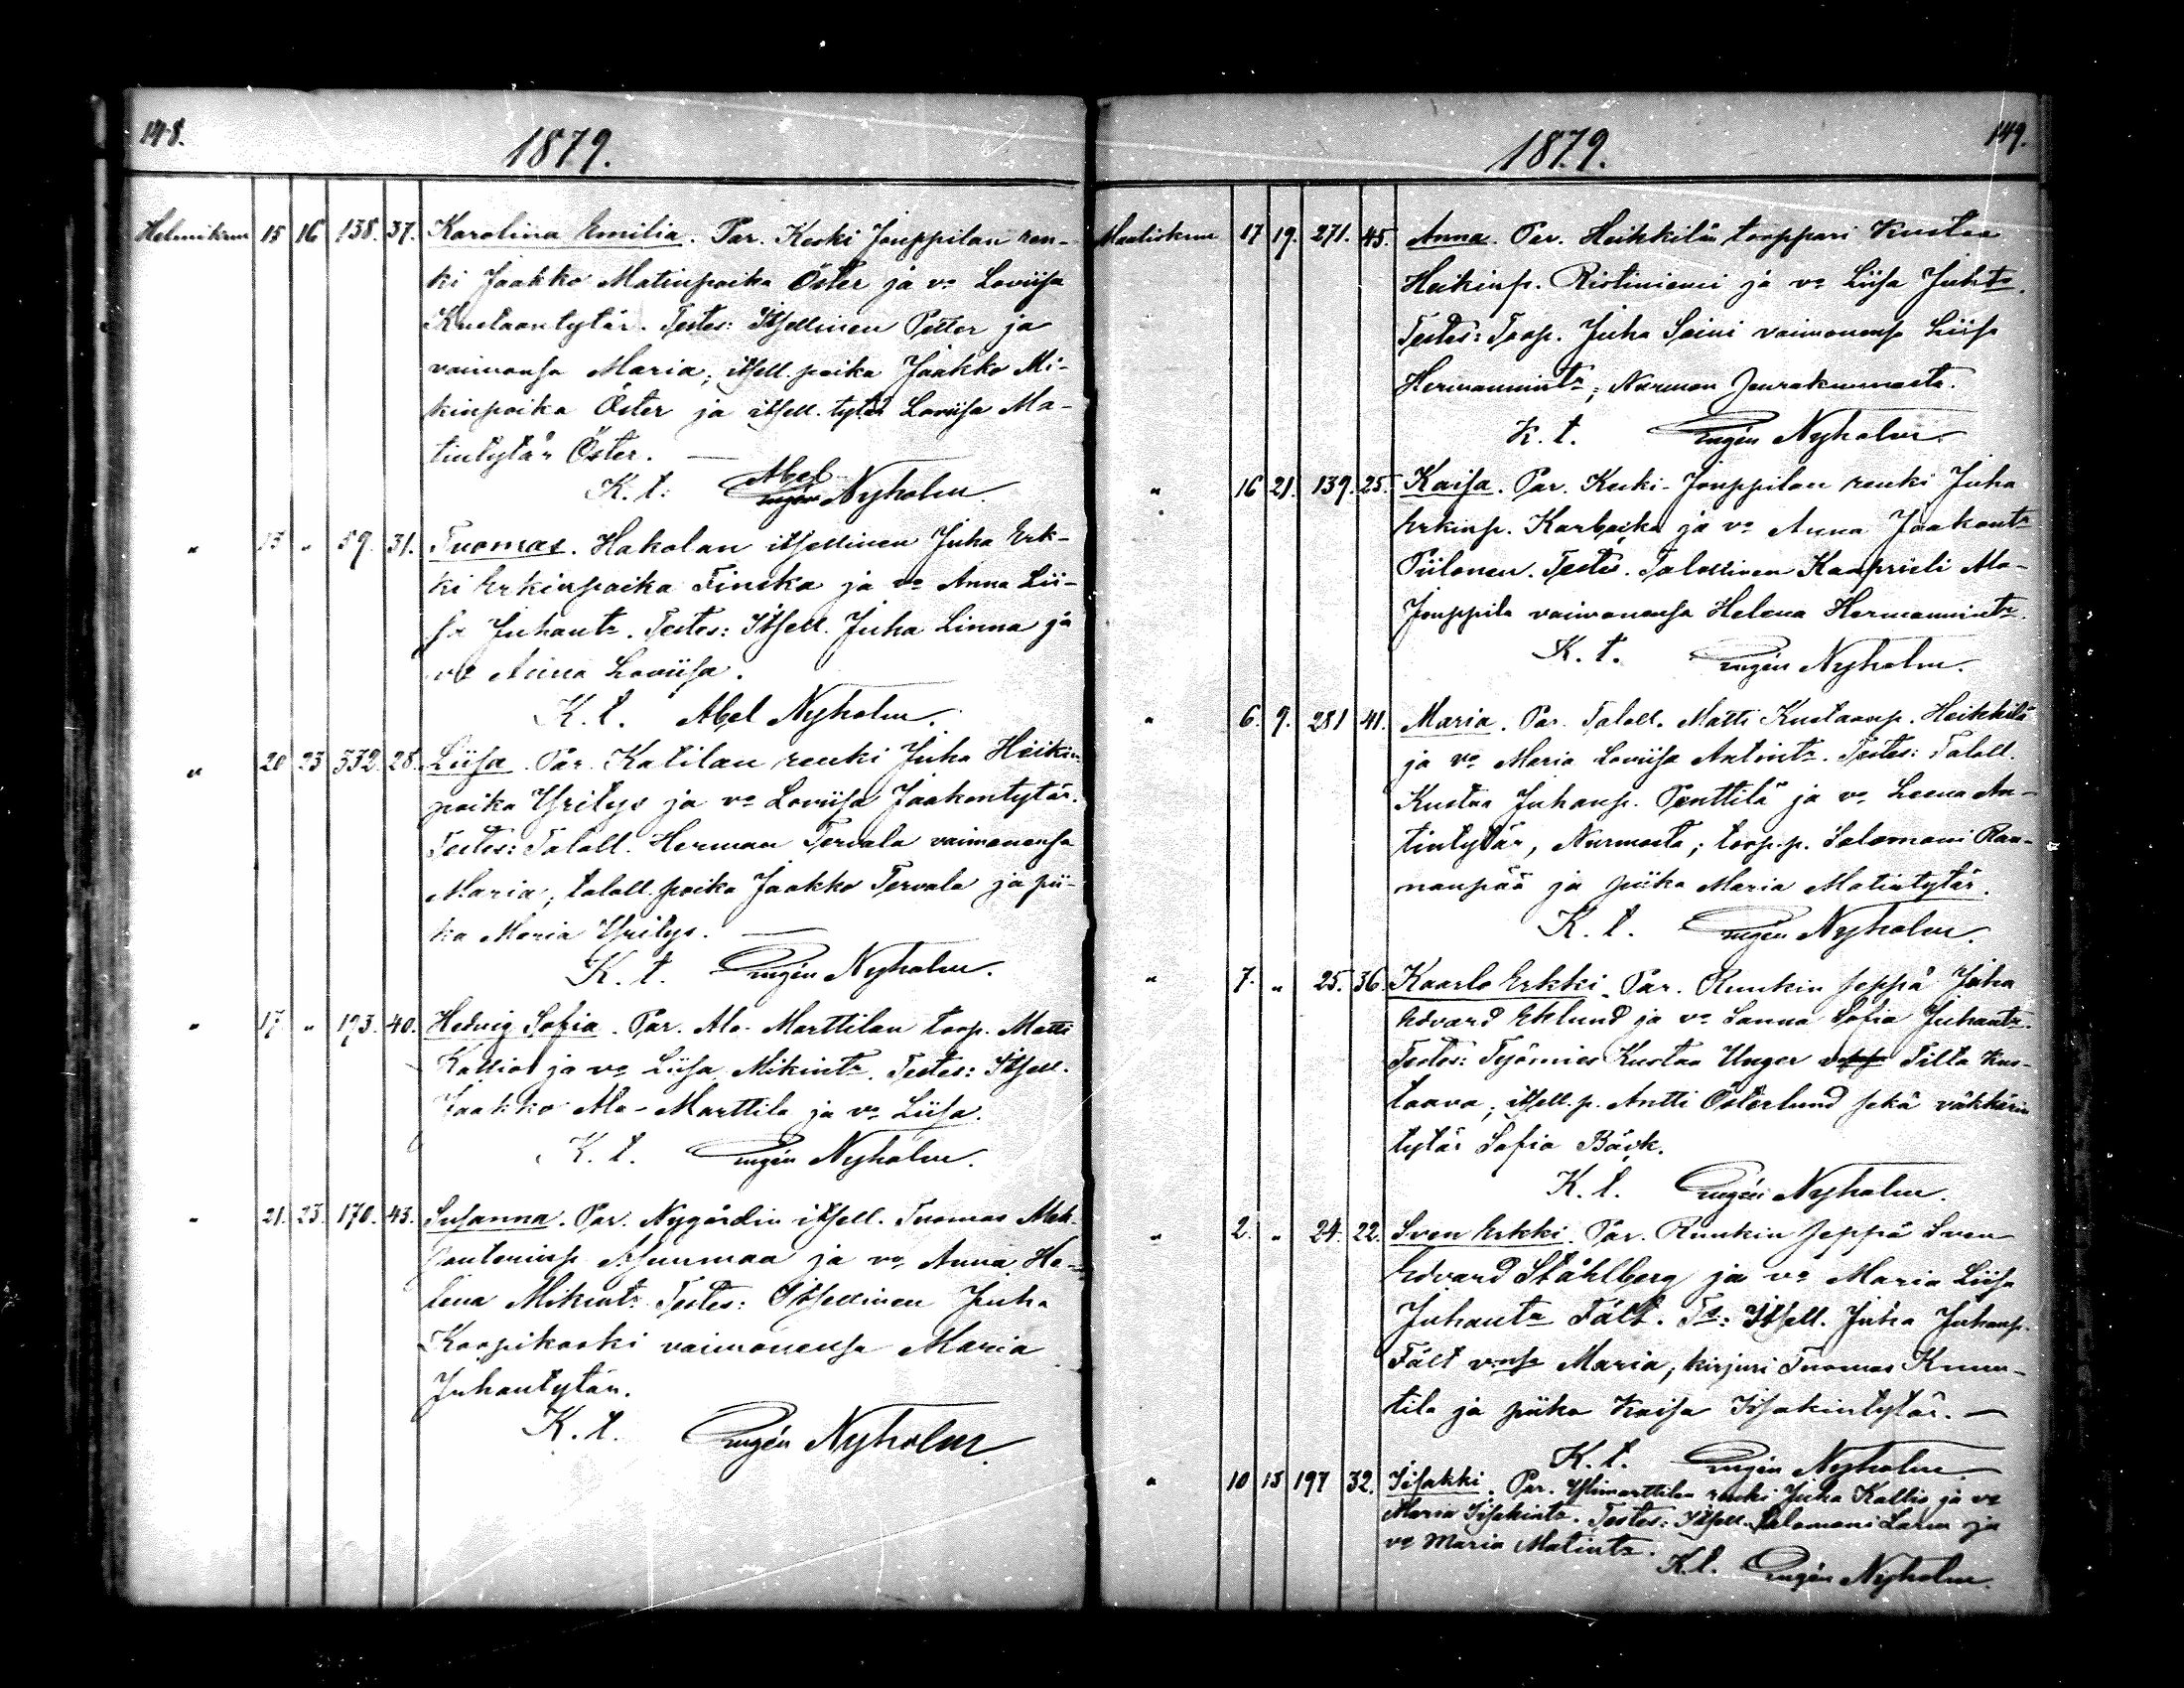 148.
1879.
Helmikuu 15 16 138. 37. Karolina Emilia. Par. Keski Jouppilan ren-
ki Jaakko Matinpoika Öster ja vo Loviisa
Kustaantytär. Testes: Itsellinen Petter ja
vaimonsa Maria, itsell. poika Jaakko Mi-
kinpoika Öster ja itsell. tytär Loviisa Ma-
tintytär Öster.
K. t. Abel Nyholm.
" 13 " 59. 31. Tuomas. Hakolan itsellinen Juha Erk-
ki Erkinpoika Finska ja vo Anna Lii-
sa Juhantr. Testes: Itsell. Juha Linna ja
vo Anna Loviisa.
K. t. Abel Nyholm.
" 20 23 332. 28. Liisa. Par. Katilan renki Juha Heikin
poika Yritys ja vo Loviisa Jaakontytär.
Testes: Taloll. Herman Tervala vaimonensa
Maria, taloll. poika Jaakko Tervala ja pii-
ka Maria Yritys.
K. t. Eugén Nyholm.
" 17. " 173. 40. Hedvig Sofia. Par. Ala-Marttilan torp. Matti
Kallio ja vo Liisa Mikintr. Testes: Itsell.
Jaakko Ala-Marttila ja vo Liisa.
K. t. Eugén Nyholm.
" 21. 23. 170. 43. Susanna. Par. Nygårdin itsell. Tuomas
ja vo Anna He-
lena Mikintr. Testes: Itsellinen Juha
Koopikoski vaimonensa Maria
Juhantytär.
K. t. Eugén Nyholm.
1879.
149.
Maaliskuu 17 19. 271. 45. Anna. Par. Heikkilän torppari Kustaa
Heikinp. Ristiniemi ja vo Liisa Juhtr.
Testes: Torp. Juha Seini vaimonensa Liisa
Hermannintr, Nurmon Jourakunnasta.
K. t. Eugén Nyholm.
" 16 21. 139. 25. Kaisa. Par. Keski-Jouppilan renki Juha
Erkinp. ja vo Anna Jaakontr
Piilonen. Testes. Talollinen Kaaprieli Ala-
Jouppila vaimonensa Helena Hermannintr.
K. t. Eugén Nyholm.
" 6. 9. 281 41. Maria. Par. Taloll. Matti Kustaanp. Heikkilä
ja vo Maria Loviisa Antintr. Testes: Taloll.
Kustaa Juhanp. Penttilä ja vo Leena An-
tintytär, Nurmosta; torp. p. Salomoni Ran-
nanpää ja piika Maria Matintytär.
K. t. Eugén Nyholm.
" 7. " 25. 36. Kaarlo Erkki. Par. Ruukin seppä Juha
Edvard Eklund ja vo Sanna Sofia Juhantr.
Testes: Työmies Kustaa Unger Tilta Kus-
taava, itsell. p. Antti Österlund sekä väkkärin
tytär Sofia Bäck.
K. t. Eugén Nyholm.
" 2. " 24. 22. Sven Erkki. Par. Ruukin seppä Sven
Edvard Ståhlberg ja vo Maria Liisa
Juhantr Fält. Ts: Itsell. Juha Juhanp.
Fält vonsa Maria, kirjuri Tuomas Knuu-
tila ja piika Kaisa Iisakintytär.
K. t. Eugén Nyholm.
" 10 13 197 32. Iisakki. Par. Ylimarttilan renki Juha Kallio ja vo
Maria Iisakintr. Testes: Itsell. Salomoni Larva ja
vo Maria Matintr.
K. t. Eugén Nyholm.